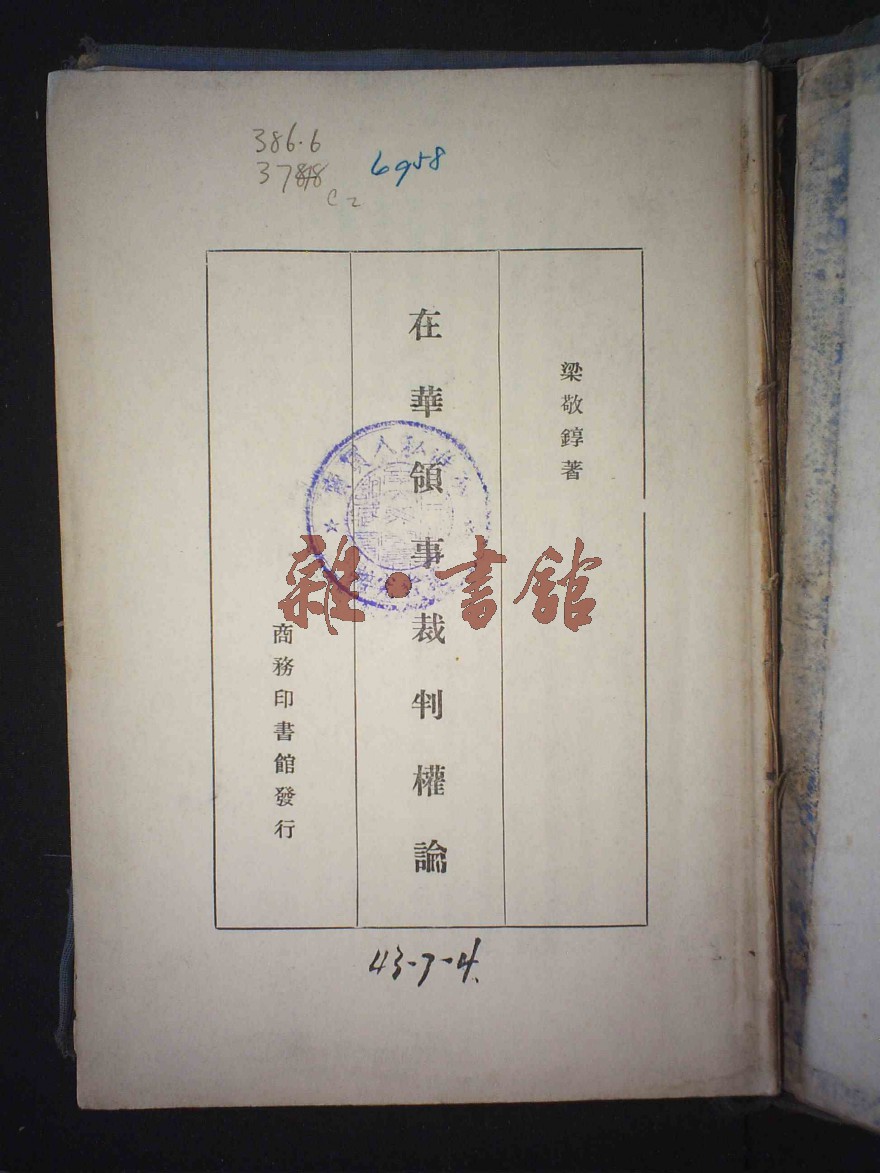 386.6
6958
梁敬錞著
在華領事裁判權論
商務印書館發行
雜·書館
43-7-4.